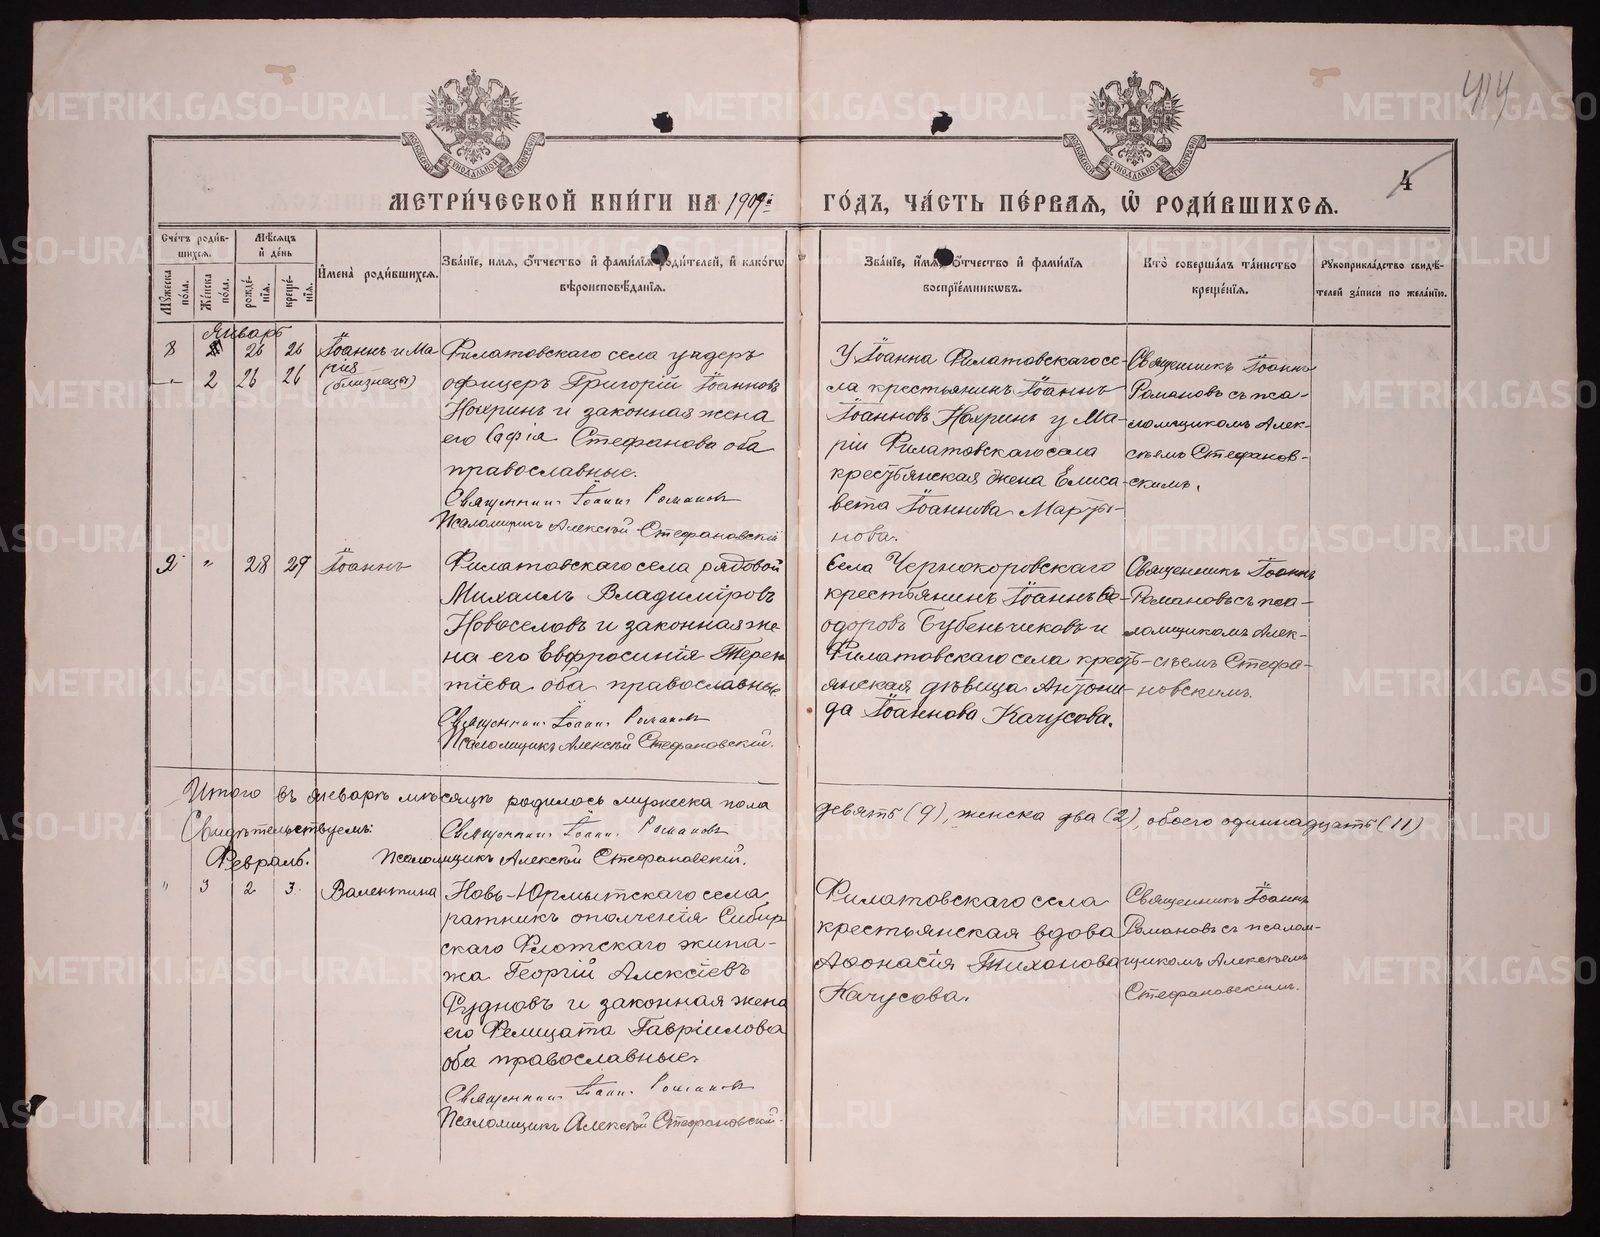 414
4
МЕТРИ́ЧЕСКОЙ КНИ́ГИ НА 1909й ГО́ДЪ, ЧА́СТЬ ПЕ́РВАЯ, Ѽ РОДИ́ВШИХСЯ.
Сче́тъ роди́в-
шихся.
Му́жеска по́ла.
Же́нска по́ла.
Мѣ́сяцъ
и҆ де́нь
рожде́-
нїя.
креще́-
нїя.
И҆мена̀ роди́вшихся.
Зва́нїе, и҆мя, ѻ҆́тчество и҆ фами́лїя роди́телей, и҆ како́гѡ
вѣроисповѣ́данїя.
Зва́нїе, и҆́мя, ѻ҆́тчество и҆ фами́лїя
воспрїе́мникѡвъ.
Кто̀ соверша́лъ та́инство
креще́нїя.
Рꙋкоприкла́дство свидѣ́-
телей за́писи по жела́нїю.
Январь
8 26 26 Іоаннъ и Ма
рія
(близнецы)
2 26 26
Филатовскаго села ундеръ
офицеръ Григорій Іоанновъ
Нохринъ и законная жена
его Софія Стефанова оба
православные.
Священникъ Іоаннъ Романовъ
Псаломщикъ Алексѣй Стефановскій
У Іоанна Филатовскаго се-
ла крестьянинъ Іоаннъ
Іоанновъ Нохринъ у Ма-
ріи Филатовскаго села
крестьянская жена Елиса-
вета Іоаннова Марты-
нова.
Священникъ Іоаннъ
Романовъ съ пса-
ломщикомъ Алек-
сѣемъ Стефанов-
скимъ.
9 " 28 29 Іоаннъ
Филатовскаго села рядовой
Михаилъ Владиміровъ
Новоселовъ и законная же
на его Евфросинія Терен
тіева оба православные
Священникъ Іоаннъ Романовъ
Псаломщикъ Алексѣй Стефановскій.
Села Чернокоровскаго
крестьянинъ Іоаннъ Ѳе-
одоровъ Бубеньчиковъ и
Филатовскаго села кресть-
янская дѣвица Антони-
да Іоаннова Качусова.
Священникъ Іоаннъ
Романовъ съ пса-
ломщикомъ Алек-
сѣемъ Стефа-
новскимъ.
Итого въ январѣ мѣсяцѣ родилось мужеска пола девять (9), женска два (2), обоего одиннадцать (11)
Свидѣтельствуемъ: Священникъ Іоаннъ Романовъ
Псаломщикъ Алексѣй Стефановскій.
Февраль.
" 3 2 3 Валентина
Новъ-Юрмытскаго села
ратникъ ополченія Сибир
скаго Флотскаго экипа-
жа Георгій Алексіевъ
Рудновъ и законная жена
его Фелицата Гавріилова
оба православные.
Священникъ Іоаннъ Романовъ
Псаломщикъ Алексѣй Стефановскій.
Филатовскаго села
крестьянская вдова
Аѳонасія Тихонова
Качусова.
Священникъ Іоаннъ
Романовъ съ псалом-
щикомъ Алексѣемъ
Стефановскимъ.
METRIKI.GASO-URAL.RU